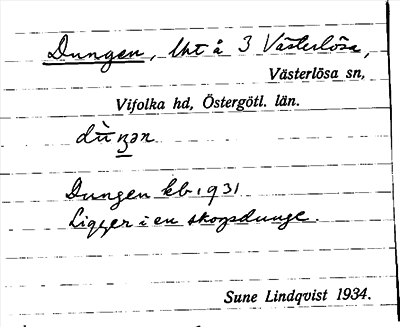 Dungen, lht å 3 Västerlösa,
Västerlösa sn,
Vifolka hd, Östergötl. län.
Dungen kb. 1931
Ligger i en skogsdunge.
Sune Lindqvist 1934.